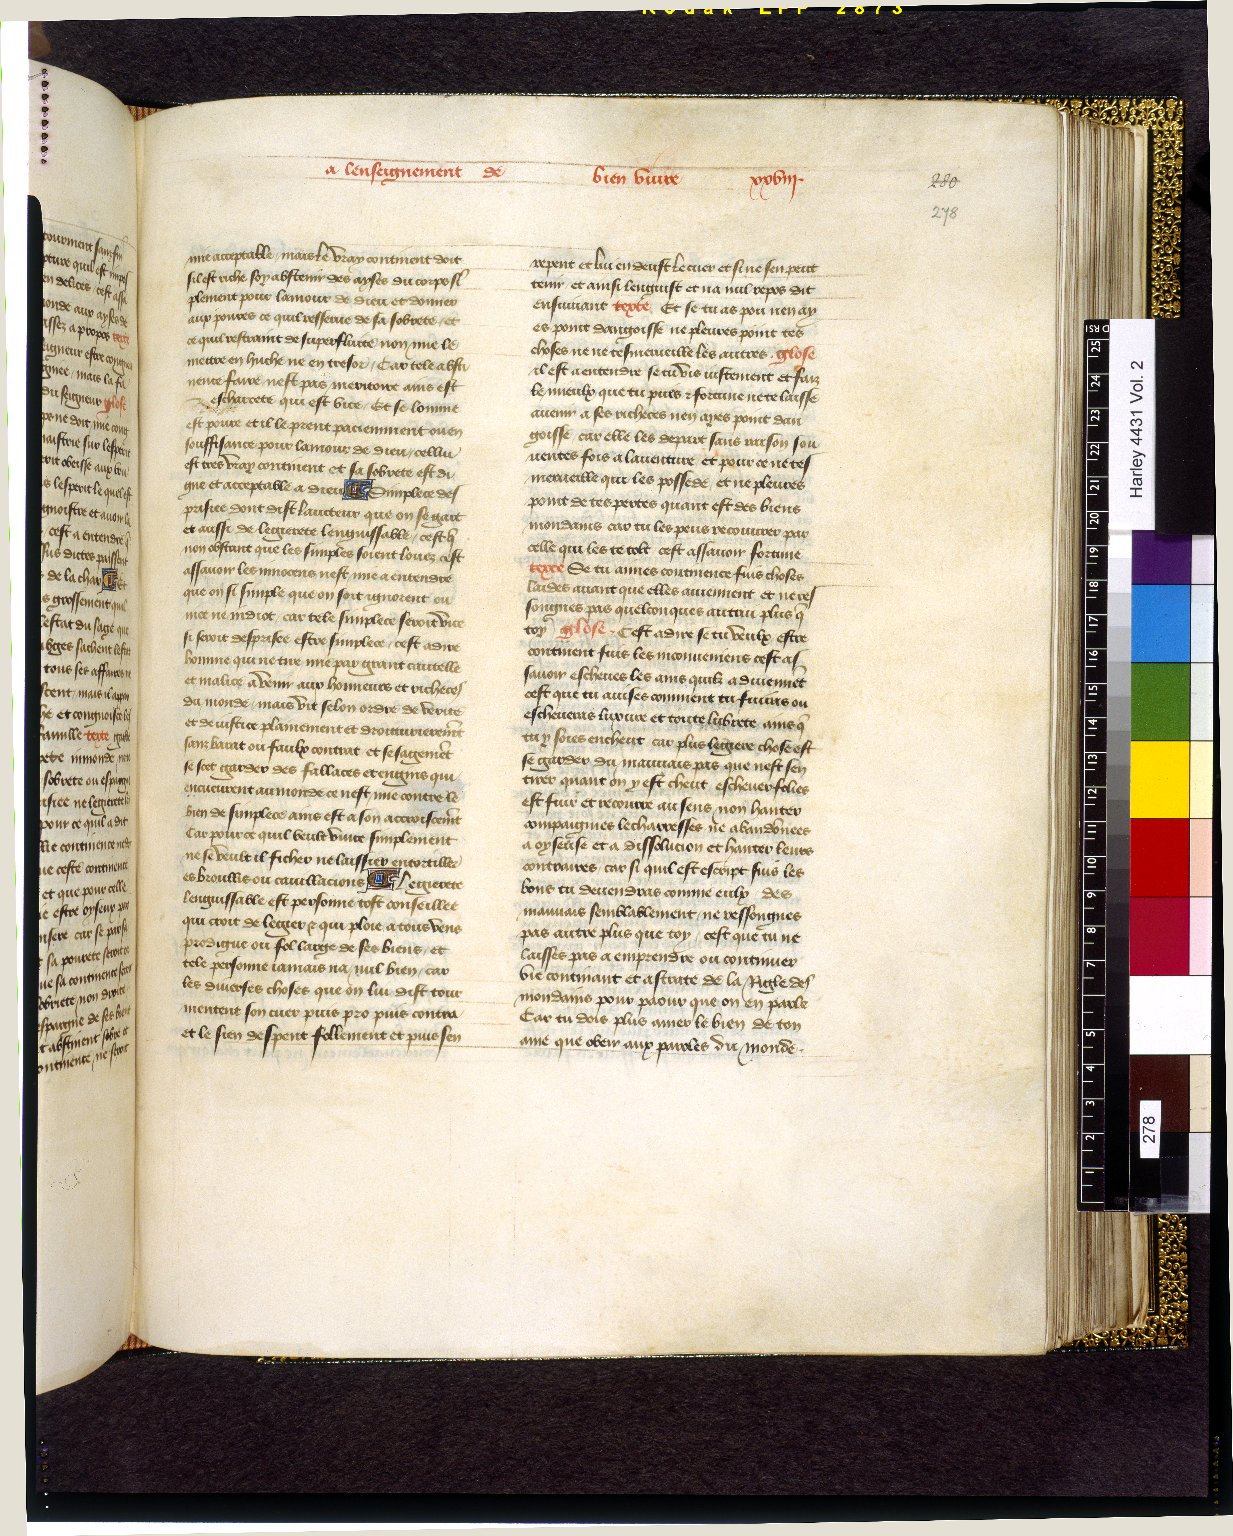 Kodak EPP 2873
a lenseignement de bien viure xxviii.
280
278
mie acceptable, mais le vray continent doit
sil est riche soy abstenir des ayses du corps si
plement pour lamour de dieu et donner
aux poures ce quil resserue de sa sobrete, et
ce quil restraint de superfluite non mie le
mettre en huche ne en tresor, Car tele absti
nence faire nest pas meritoire ains est
escharcete qui est vice, Et se lomme
est poure et il le prent paciemment ou en
souffisance pour lamour de dieu, cellui
est tres vray continent et sa sobrete est di
gne et acceptable a dieu Simplece des
prisiee dont dist lauteur que on se gart
et aussi de legierete lenguissable, cest
non obstant que les simples soient louez cest
assauoir les innocens nest mie a entendre
que on si simple que on soit ignorent ou
nice ne indiot, car tele simplece seroit vice
si seroit desprisee estre simplece, cest adire
homme qui ne tire mie par grant cautelle
et malice a venir aux honneurs et richeces
du monde, mais vit selon ordre de verite
et de iustice plainement et droitturierement
sanz barat ou faulx contrat et se sagement
se scet garder des fallaces et engins qui
encueurent au monde ce nest mie contre le
bien de simplece ains est a son accroiscement
Car pour ce quil veult viure simplement
ne se veult il ficher ne laissier entortiller
es broullis ou cauillacions Legierete
lenguissable est personne tost conseillee
qui croit de legier & qui ploie a tous vens
prodigue ou fol large de ses biens, et
tele personne iamais na nul bien, car
les diuerses choses que on lui dist tour
mentent son cuer puis pro puis contra
et le sien despent follement et puis sen
repent et lui en deust le cuer et si ne sen peut
tenir et ainsi lenguist et na nul repos dit
ensuiuant texte Et se tu as pou nen ay
es point dangoisse ne pleures point tes
choses ne ne tesmerueille les autres. glose
il est a entendre se tu vis iustement et faiz
le mieulx que tu puis & fortune ne te laisse
auenir a ses richeces nen ayes point dan
goisse car elle les depart sans raison sou
uentes fois a lauenture et pour ce ne tes
merueille qui les possede, et ne pleures
point de tes pertes quant est des biens
mondains car tu les peus recouurer par
celle qui les te tolt cest assauoir fortune
texte Se tu aimes continence fuis choses
laides auant que elles auiennent et ne res
songnes pas quelconques autrui plus que
toy glose. Cest adire se tu veulx estre
continent fuis les inconueniens cest as
sauoir escheues les ains quilz aduiennent
cest que tu auises comment tu fuiras ou
escheueras luxure et toute lubrete ains que
tu y soies encheut car plus legiere chose est
se garder du mauuais pas que nest sen
tirer quant on y est cheut escheuer folies
est fuir et recourre au sens, non hanter
compaignies lecharresses ne abandonnees
a oyseuse et a dissolucion et hanter leurs
contraires, car si quil est escript suis les
bons tu deuendras comme eulx des
mauuais semblablement, ne ressongnes
pas autre plus que toy, cest que tu ne
laisses pas a emprendre ou continuer
vie continant et astraite de la Rigle des
mondains pour paour que on en parle
Car tu dois plus amer le bien de ton
ame que obeir aux paroles du monde.
Harley 4431 Vol. 2
278